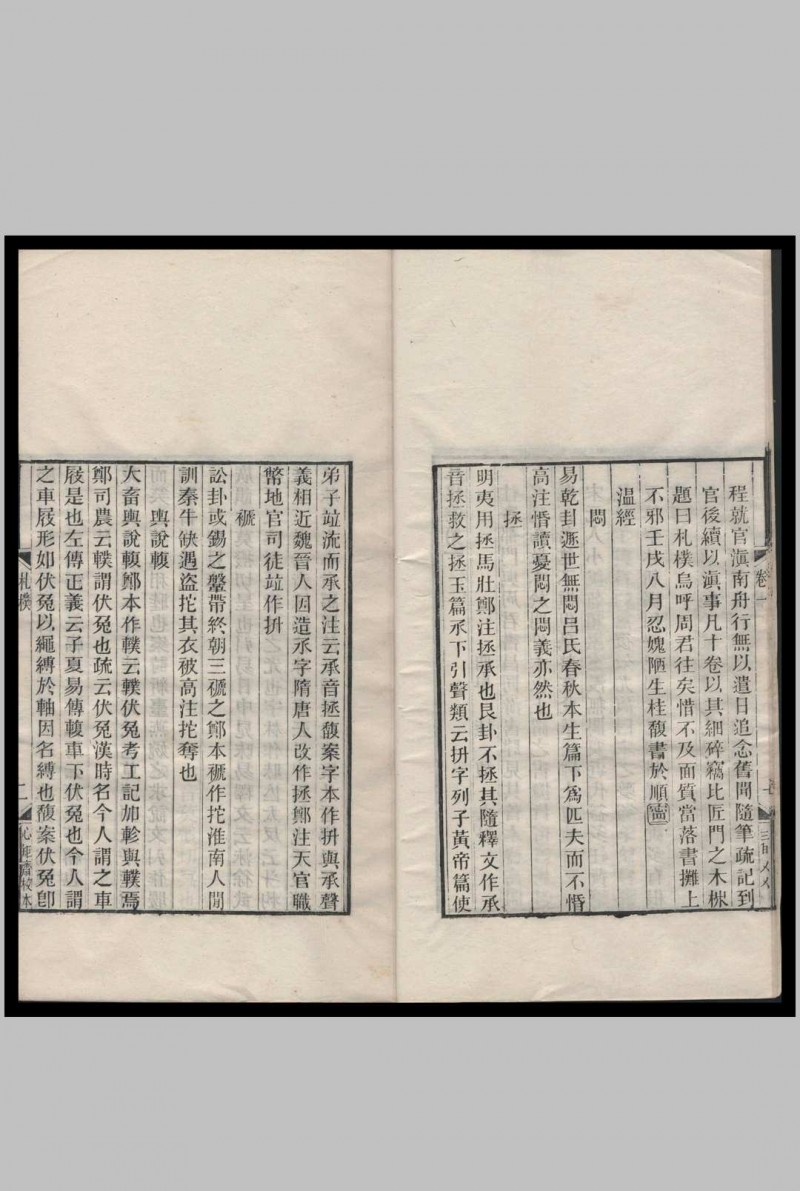 卷一
程就官滇南舟行無以遣日追念舊聞隨筆疏記到
官後續以滇事凡十卷以其細碎竊比匠門之木柹
題曰札樸嗚呼周君往矣惜不及面質當落書攤上
不邪壬戌八月忍媿陋生桂馥書於順
溫經
悶
易乾卦遯世無悶呂氏春秋本生篇下爲匹夫而不惛
高注惛讀憂悶之悶義亦然也
拯
明夷用拯馬壯鄭注拯承也艮卦不拯其隨釋文作承
音拯救之拯玉篇氶下引聲類云抍字列子黃帝篇使
弟子竝流而承之注云承音拯馥案字本作抍與承聲
義相近魏晉人因造氶字隋唐人改作拯鄭注天官職
幣地官司徒竝作抍
褫
訟卦或錫之鞶帶終朝三褫之鄭本褫作拕淮南人閒
訓秦牛缺遇盜拕其衣被高注拕奪也
輿說輹
大畜輿說輹鄭本作轐云轐伏兔考工記加軫與轐焉
鄭司農云轐謂伏兔也疏云伏兔漢時名今人謂之車
屐是也左傳正義云子夏易傳輹車下伏兔也今人謂
之車屐形如伏兔以繩縛於軸因名縛也馥案伏兔卽
札樸
二
心矩齋校本